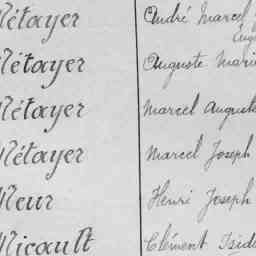 Métayer André Marcel
Augu
Métayer Auguste Marie
Métayer Marcel Auguste
Métayer Marcel Joseph
Meur Henri Joseph
Micault Clément Isido